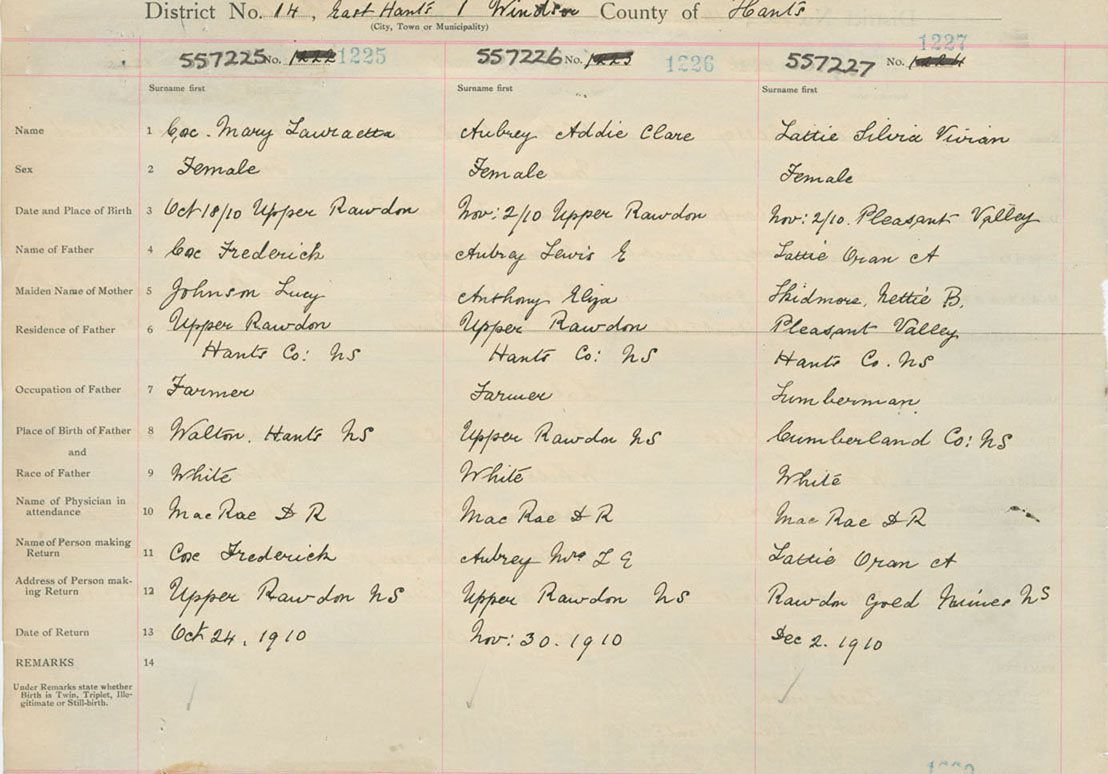 District No. 14, East Hants / Windsor County of Hants
(City, Town or Municipality)
557225 No. 1225 557226 No. 1226 557227 No. 1227
Surname first Surname first Surname first
Name 1 Cox. Mary Lauraetta Aubrey Addie Clare Lattie Silvia Vivian
Sex 2 Female Female Female
Date and Place of Birth 3 Oct 18/10 Upper Rawdon Nov: 2/10 Upper Rawdon Nov: 2/10. Pleasant Valley
Name of Father 4 Cox Frederick Aubrey Lewis E Lattie Oran A
Maiden Name of Mother 5 Johnson Lucy Anthony Eliza Skidmore, Nettie B.
Residence of Father 6 Upper Rawdon Upper Rawdon Pleasant Valley
Hants Co: NS Hants Co: NS Hants Co. NS
Occupation of Father 7 Farmer Farmer Lumberman
Place of Birth of Father 8 Walton. Hants NS Upper Rawdon NS Cumberland Co: NS
and
Race of Father 9 White White White
Name of Physician in
attendance 10 MacRae D R MacRae D R MacRae D R
Name of Person making
Return 11 Cox Frederick Aubrey Mrs L E Lattie Oran A
Address of Person mak-
ing Return 12 Upper Rawdon NS Upper Rawdon NS Rawdon Gold Mines NS
Date of Return 13 Oct 24, 1910 Nov: 30. 1910 Dec 2. 1910
REMARKS 14
Under Remarks state whether
Birth is Twin, Triplet, Ille-
gitimate or Still-birth.